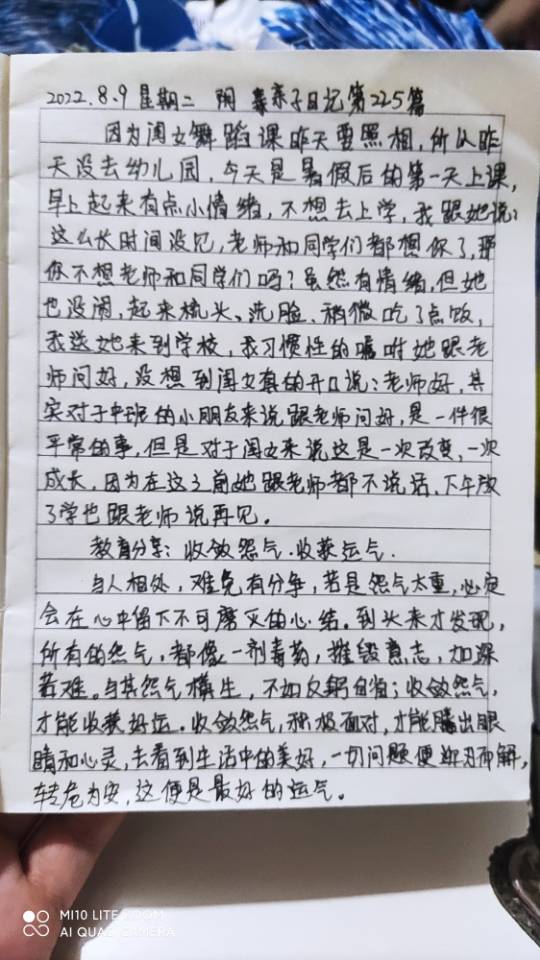 2022.8.9 星期二 阴 亲子日记第225篇
因为闺女舞蹈课昨天要照相,所以昨
天没去幼儿园,今天是暑假后的第一天上课,
早上起来有点小情绪,不想去上学,我跟她说:
这么长时间没见,老师和同学们都想你了,那
你不想老师和同学们吗?虽然有情绪,但她
也没闹,起来梳头、洗脸、稍微吃了点饭,
我送她来到学校,我习惯性的嘱咐她跟老
师问好,没想到闺女真的开口说:老师好,其
实对于中班的小朋友来说跟老师问好,是一件很
平常的事,但是对于闺女来说这是一次改变,一次
成长,因为在这之前她跟老师都不说话,下午放
了学也跟老师说再见。
教育分享:收敛怨气.收获运气.
与人相处,难免有分争,若是怨气太重,必定
会在心中留下不可磨灭的心结。到头来才发现,
所有的怨气,都像一剂毒药,摧毁意志,加深
苦难。与其怨气横生,不如反躬自省;收敛怨气,
才能收获好运。收敛怨气,积极面对,才能腾出眼
睛和心灵,去看到生活中的美好,一切问题便迎刃而解,
转危为安,这便是最好的运气。
MI 10 LITE ZOOM
AI QUAD CAMERA